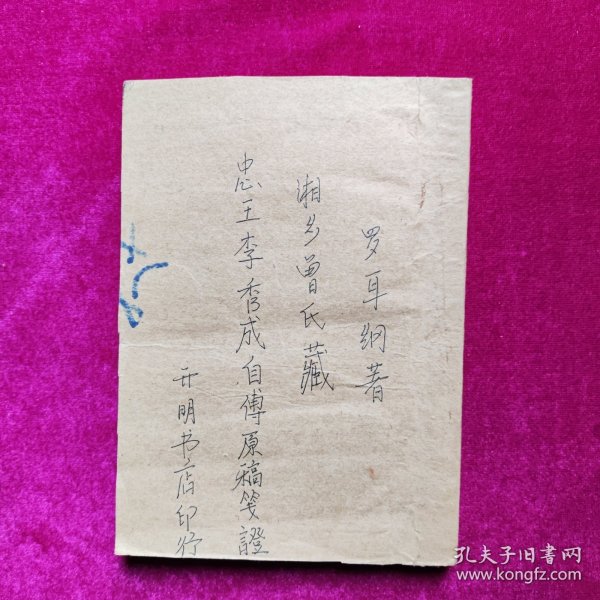 罗耳纲著
湘乡曾氏藏
忠王李秀成自傅原稿笺證
开明书店印行
孔夫子旧書网
www.kongfz.com